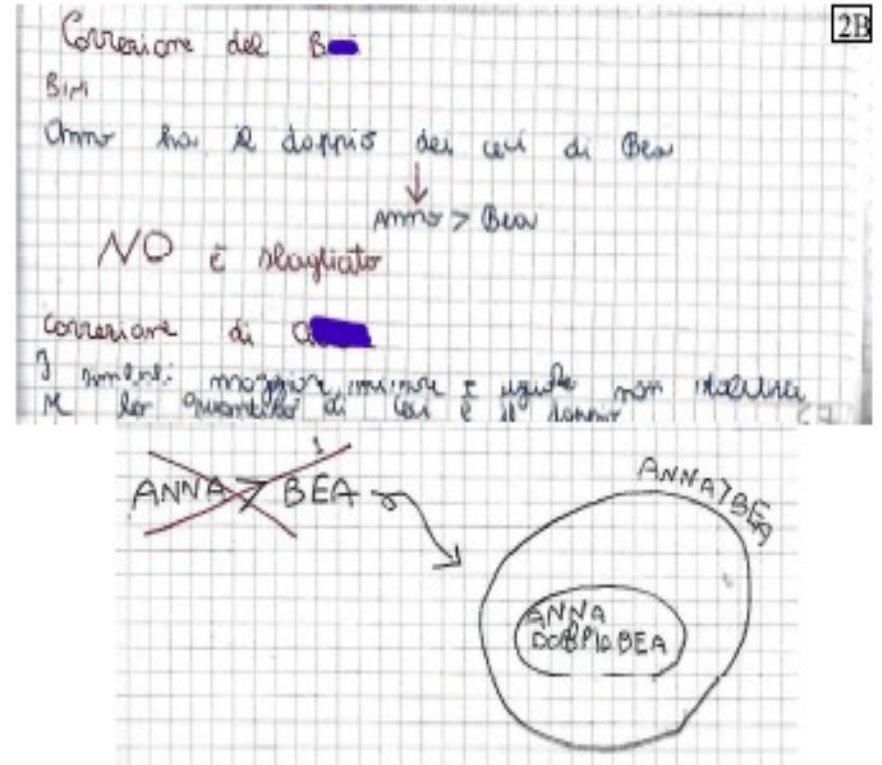 2B
Correzione del B
BIM
Anna ha il doppio dei ceci di Bea
Anna > Bea
NO è sbagliato
correzione di
I simboli maggiore, minore e uguale non
se la quantità di ceci è il doppio
ANNA > BEA
ANNA > BEA
ANNA
DOPPIO BEA